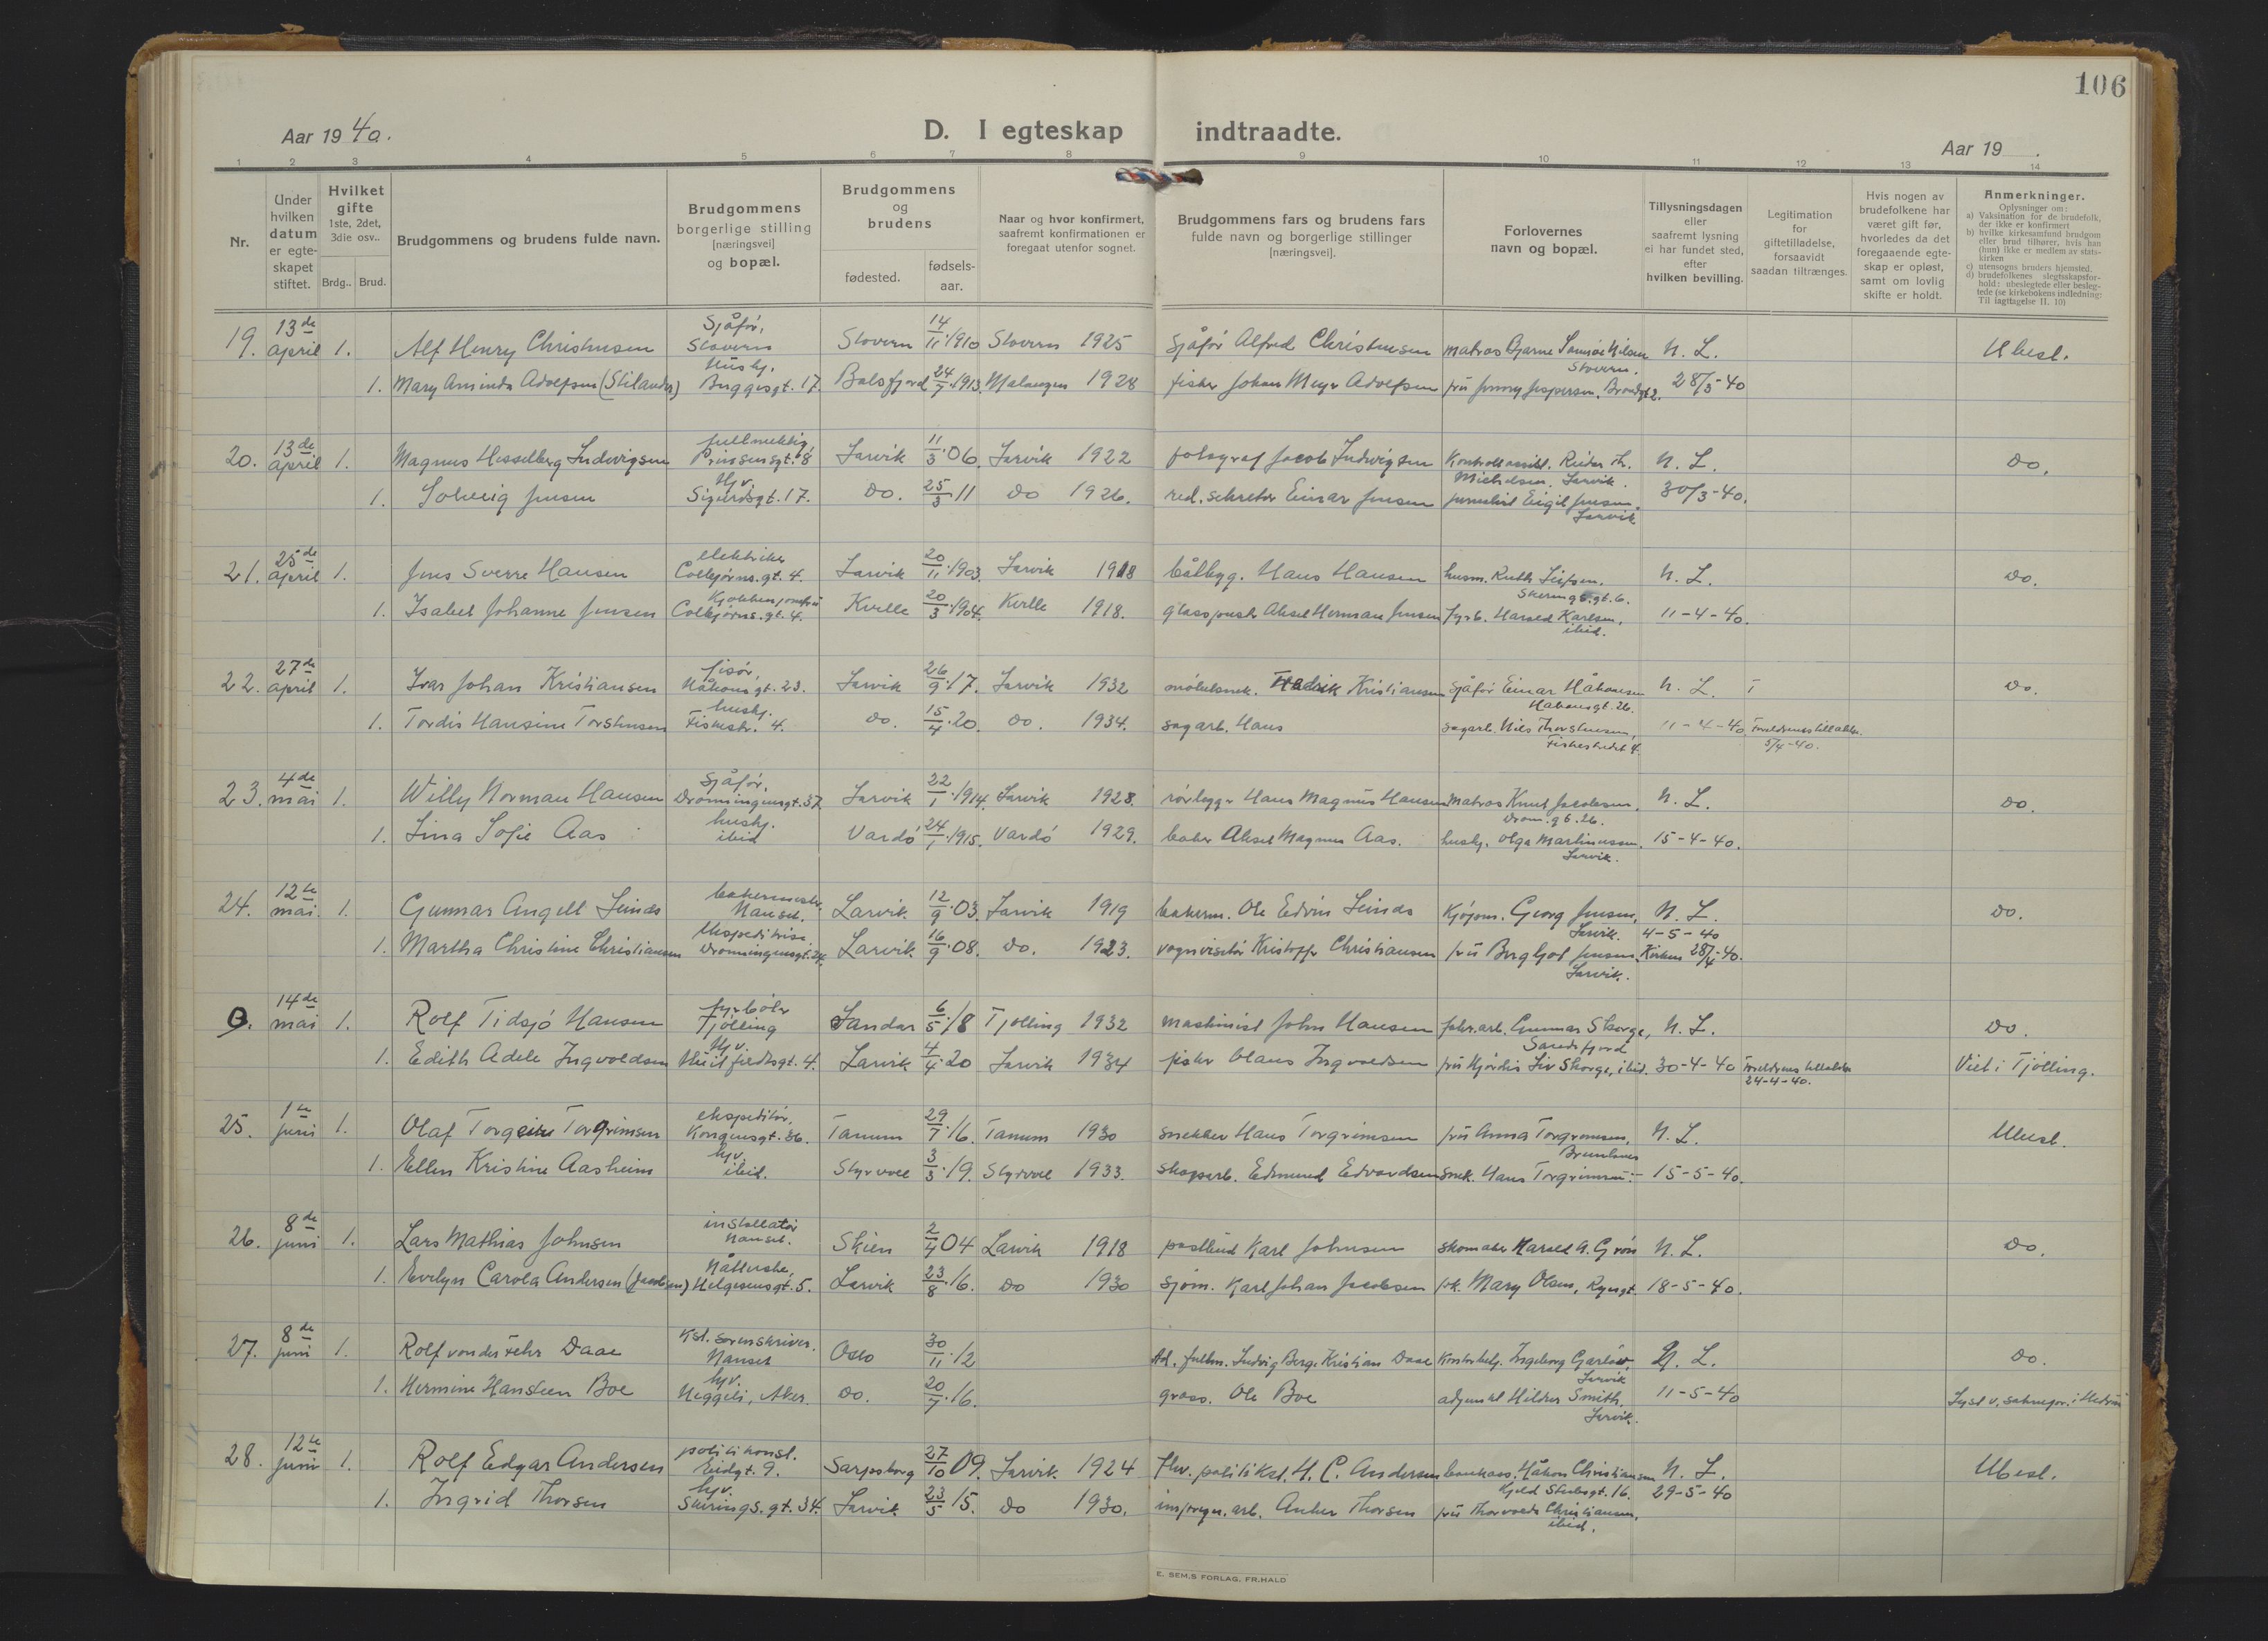 106
Aar 19 40.
D. I egteskap indtraadte.
Aar 19 .
1 2 3 4 5 6 7 8 9 10 11 12 13 14
Nr.
Under hvilken datum er egteskapet stiftet.
Hvilket gifte 1ste, 2det, 3die osv..
Brdg.. Brud.
Brudgommens og brudens fulde navn.
Brudgommens borgerlige stilling [næringsvei] og bopæl.
Brudgommens og brudens
fødested.
fødselsaar.
Naar og hvor konfirmert, saafremt konfirmationen er foregaat utenfor sognet.
Brudgommens fars og brudens fars fulde navn og borgerlige stillinger [næringsvei].
Forlovernes navn og bopæl.
Tillysningsdagen eller saafremt lysning ei har fundet sted, efter hvilken bevilling.
Legitimation for giftetilladelse, forsaavidt saadan tiltrænges.
Hvis nogen av brudefolkene har været gift før, hvorledes da det foregaaende egteskap er opløst, samt om lovlig skifte er holdt.
Anmerkninger.
Oplysninger om:
a) Vaksination for de brudefolk, der ikke er konfirmert
b) hvilke kirkesamfund brudgom eller brud tilhører, hvis han (hun) ikke er medlem av statskirken
c) utensogns bruders hjemsted.
d) brudefolkenes slegtsskapsforhold: ubeslegtede eller beslegtede (se kirkebokens indledning: Til iagttagelse II. 10)
19. 13de april 1. Alf Henry Christensen Sjåfør, Stavern Stavern 14/11 1910 Stavern 1925 Sjåfør Alfred Christensen matros Bjarne Nilsen Stavern. N. L. Ubesl.
1. Mary Aminda Adolfsen Hushj. Bryggegt. 17. Balsfjord 24/7 1913. Malangen 1928 fisker Johan Meyer Adolfsen fru Jenny Jespersen, 28/3-40
20. 13de april 1. Magnus Hesselberg Ludvigsen fullmektig Prinsensgt. 8 Larvik 11/3 06. Larvik 1922 fotograf Jacob Ludvigsen Kontorassist. Reidar Th. Michelsen. Larvik. N. L. do.
1. Solveig Jensen Hjv. Sigurdsgt. 17. do. 25/3 11 do 1926. red. sekretær Einar Jensen journalist Eigil Jensen. Larvik 30/3-40.
21. 25de april 1. Jens Sverre Hansen elektriker Colbjørns.gt. 4. Larvik 20/11 1903. Larvik 1918 båtbyg. Hans Hansen husm. Ruth Skerings.gt. 6. N. L. do.
1. Isabel Johanne Jensen Kjøkkenjomfru Colbjørns.gt. 4. Kvelle 20/3 1904. Kvelle 1918. glasspuster Aksel Herman Jensen fyrb. Harald Karlsen, ibid. 11-4-40.
22. 27de april 1. Ivar Johan Kristiansen Håkonsgt. 23. Larvik 26/9 17. Larvik 1932 møbelsnek. Fredrik Kristiansen Sjåfør Einar Håkonsen Håkonsgt. 26. N. L. do.
1. Tordis Hansine Torstensen hushj. Fiskestr. 4. do. 15/4 20. do. 1934. sagarb. Hans sagarb. Nils Thorstensen, Fiskestredet 4. 11-4-40 Foreldrenes tillatelse. 5/4-40.
23. 4de mai 1. Willy Norman Hansen Sjåfør, Dronningensgt. 37. Larvik 22/1 1914. Larvik 1928. rørlegger Hans Magnus Hansen Matros Knut Jacobsen, Dronn.gt. 26. N. L. do.
1. Lina Sofie Aas hushj. ibid Vardø 24/1 1915. Vardø 1929. baker Aksel Magnus Aas. hushj. Olga Martinussen, Larvik. 15-4-40.
24. 12te mai 1. Gunnar Angell Linds bakermester, Nanset. Larvik 12/9 03. Larvik 1919 bakerm. Ole Edvin Linds Kjøpm. Georg Jensen, Larvik. N. L. 4-5-40 do.
1. Martha Christine Christiansen Ekspeditrise, Dronningensgt. 24. Larvik 16/9 08. do. 1923. vognvisitør Kristoffer Christiansen fru Bergljot Jensen, Larvik. Kirken 28/4-40.
0. 14de mai 1. Rolf Tidsjø Hansen fyrbøter Tjølling Sandar 6/5 18 Tjølling 1932 maskinist John Hansen fabr.arb. Gunnar Skorge, Sandefjord N. L. do.
1. Edith Adele Ingvoldsen Hjv. Huitfeldtsgt. 4. Larvik 4/4 20 Larvik 1934 fisker Olaus Ingvoldsen fru Hjørdis Liv Skorge, ibid. 30-4-40 Foreldrenes tillatelse 24-4-40. Viet i Tjølling.
25. 1te juni 1. Olaf Torgeire Torgrimsen ekspeditør, Kongensgt. 36. Tanum 29/7 16. Tanum 1930 snekker Hans Torgrimsen fru Anna Torgrimsen, Brunlanes N. L. Ubesl.
1. Ellen Kristine Aasheim hjv. ibid. Styrvoll 3/3 19. Styrvoll 1933. skogarb. Edmund Edvardsen Snek. Hans Torgrimsen 15-5-40.
26. 8de juni 1. Lars Mathias Johnsen installatør Nanset. Skien 2/4 04 Larvik 1918 postbud Karl Johnsen skomaker Harald A. Grøn N. L. do.
1. Evelyn Carola Andersen (Jacobsen) Nåtlerske, Helgesensgt. 5. Larvik 23/8 16. do 1930 sjøm. Karl Johan Jacobsen frk. Mary Olsen, 18-5-40.
27. 8de juni 1. Rolf von der Fehr Daae Kst. sorenskriver. Nanset Oslo 30/11 12 Ad. fullm. Ludvig Berge Kristian Daae Kontorbetj. Ingeborg Larvik N. L. do.
1. Hermine Hansteen Boe hjv. Heggeli, Aker. do. 20/7 16. gross. Ole Boe adjunkt Hildur Smith. Larvik. 11-5-40 Lyst v. i Hedrum
28. 12te juni 1. Rolf Edgar Andersen politikonst. Eidgt. 9. Sarpsborg 27/10 09. Larvik 1924 fhv. politikst. H. C. Andersen Håkon Christiansen Kjeld Stubsgt. 16. N. L. Ubesl.
1. Ingrid Thorsen hjv. Skirings.gt. 34. Larvik 23/5 15. do 1930. arb. Anker Thorsen fru Thorvalda Christiansen, ibid. 29-5-40
E. SEM,S FORLAG, FR.HALD